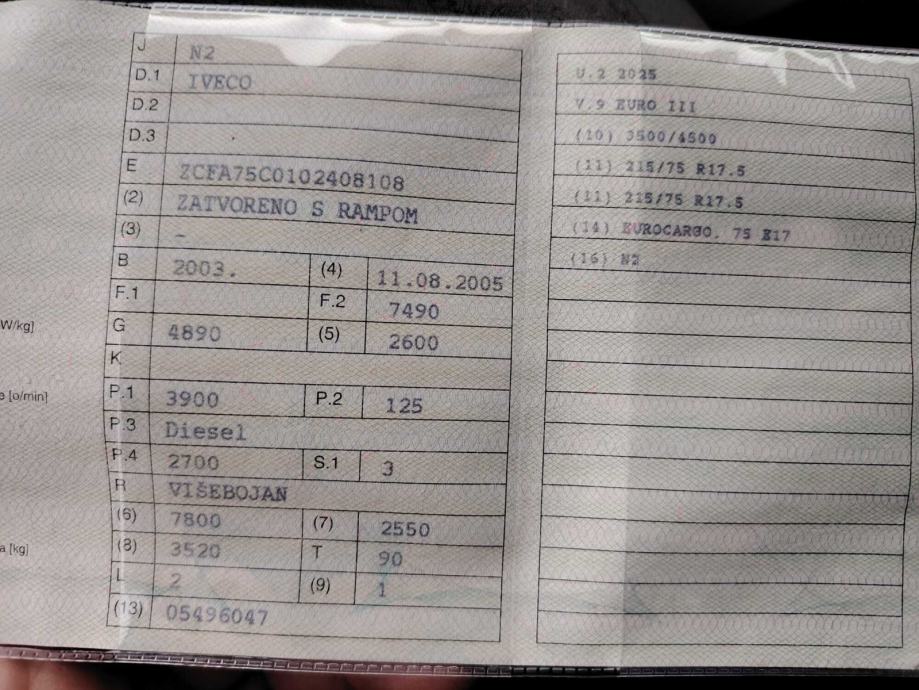 J N2
D.1 IVECO
D.2
D.3
E ZCFA75C0102408108
(2) ZATVORENO S RAMPOM
(3) -
B 2003. (4) 11.08.2005
F.1 F.2 7490
W/kg]
G 4890 (5) 2600
K
e [o/min]
P.1 3900 P.2 125
P.3 Diesel
P.4 2700 S.1 3
R VIŠEBOJAN
(6) 7800 (7) 2550
a [kg]
(8) 3520 T 90
L 2 (9) 1
(13) 05496047
U.2 2025
V.9 EURO III
(10) 3500/4500
(11) 215/75 R17.5
(11) 215/75 R17.5
(14) EUROCARGO, 75 E17
(16) N2